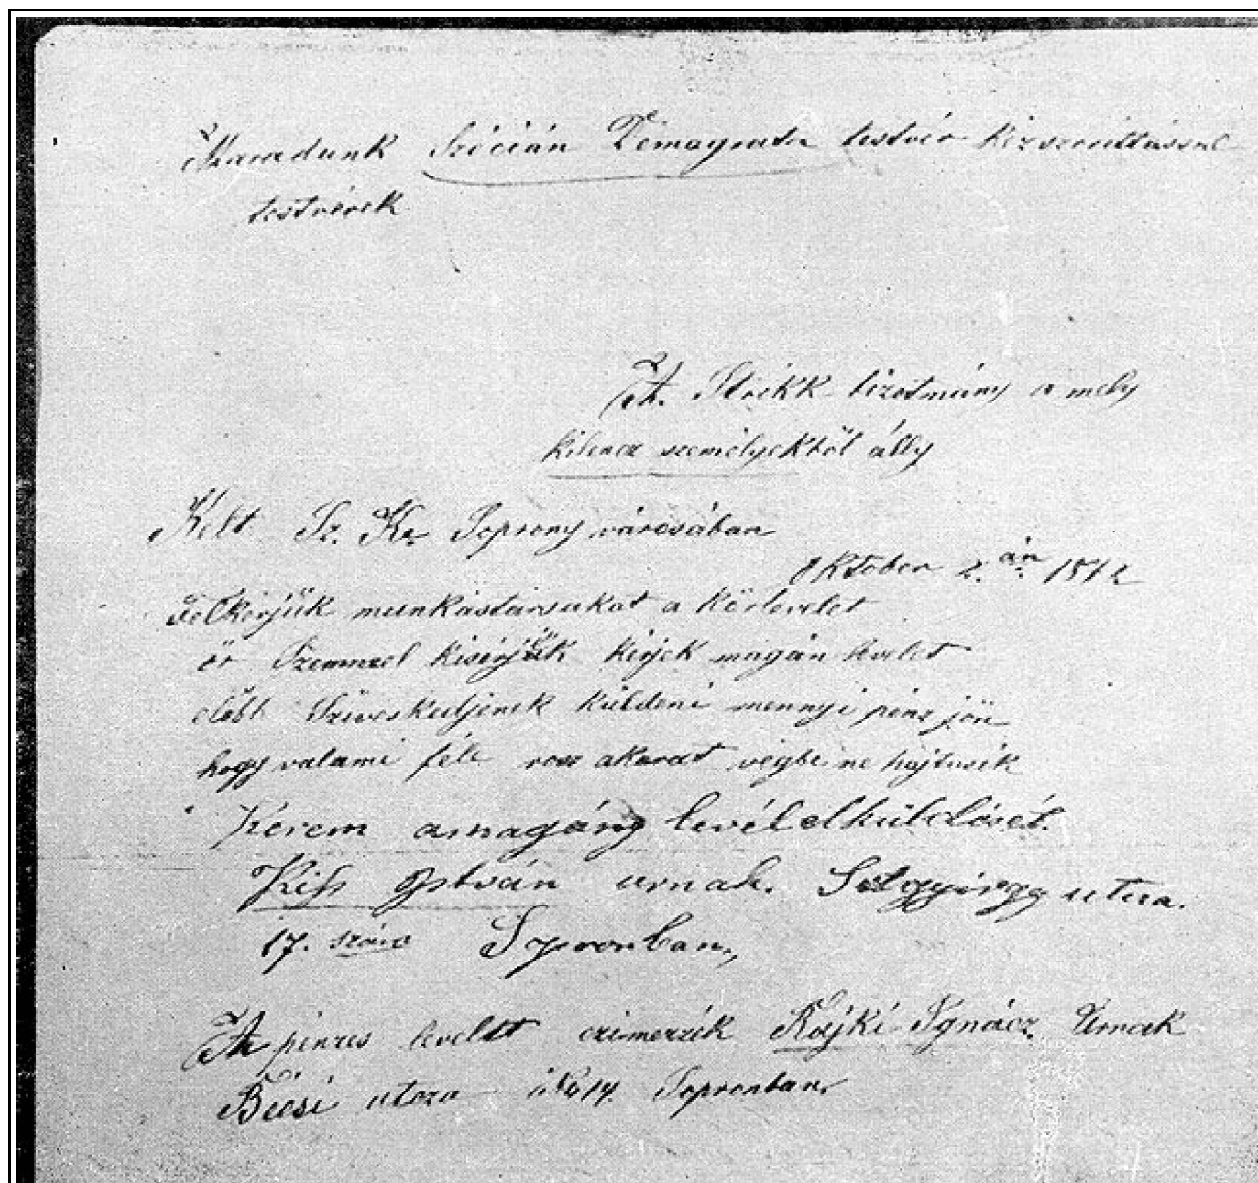 Maradunk Sócián Demagrata testvér kézszorittással
testvérek
A. Strikk bizotmány a mely
kilencz személyektöl álly
Kelt Sz. Kr. Soprony városában
Oktober 2.án 1872
Felkérjük munkástársakat a körlevelet
ör Szemmel kisérjük kérjek magán levelet
elöbb Sziveskedjenek küldeni mennyi pénz jön
hogy valami féle rosz akarat végbe ne hajtasék
Kérem amagány levél elküldését.
Kiss István urnak. Sztgyörgy utcza.
17. szám Sopronban,
A pénzes levelet czimezzék Rájki Ignácz Urnak
Bécsi utcza No 14. Sopronban.